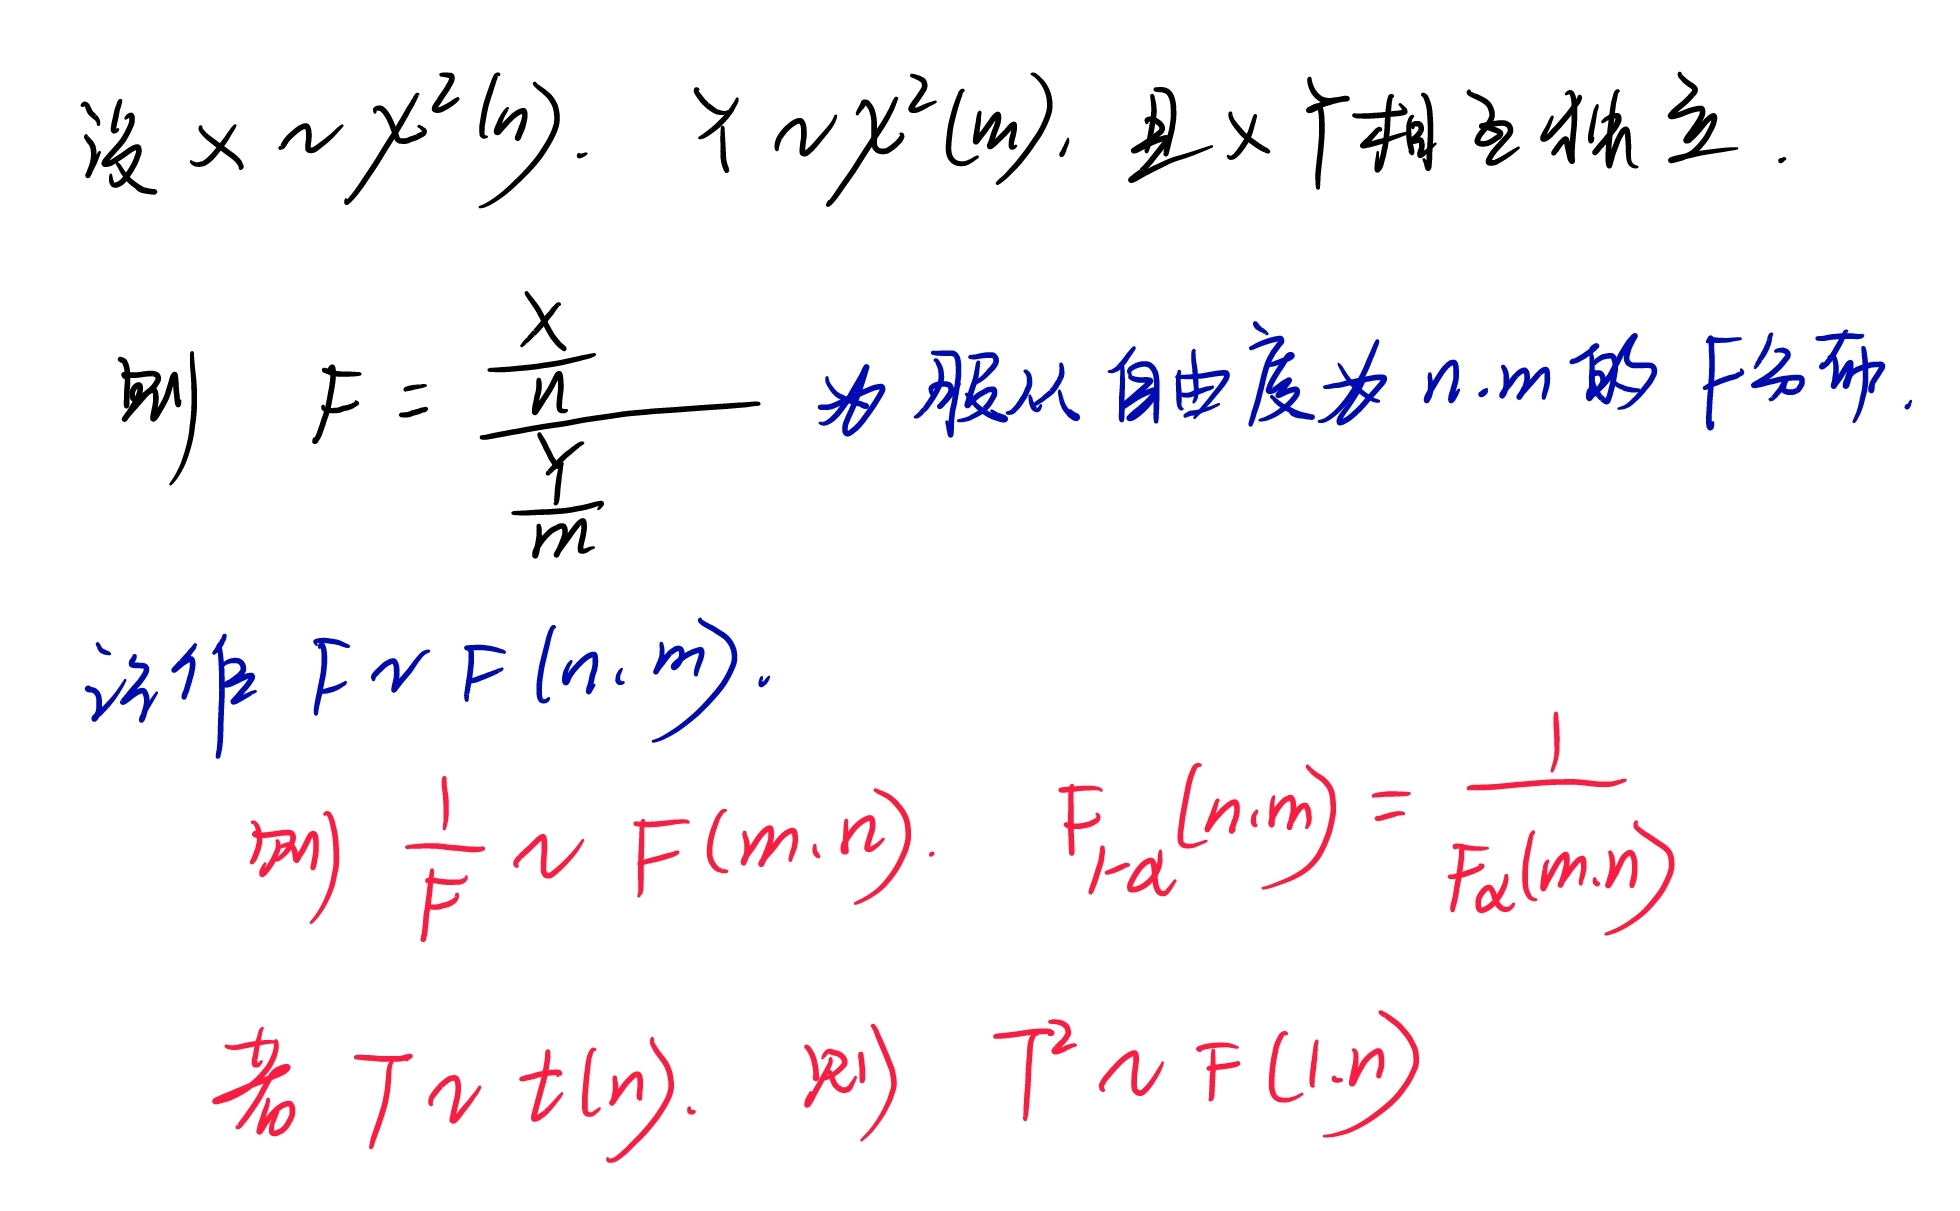 设 X ~ χ²(n). Y ~ χ²(m), 且 X Y 相互独立.
则 F = (X/n)/(Y/m) 为服从自由度为 n.m 的 F分布.
记作 F ~ F(n, m).
则 1/F ~ F(m, n). F_{1-α}(n,m) = 1/F_α(m.n)
若 T ~ t(n). 则 T² ~ F(1.n)